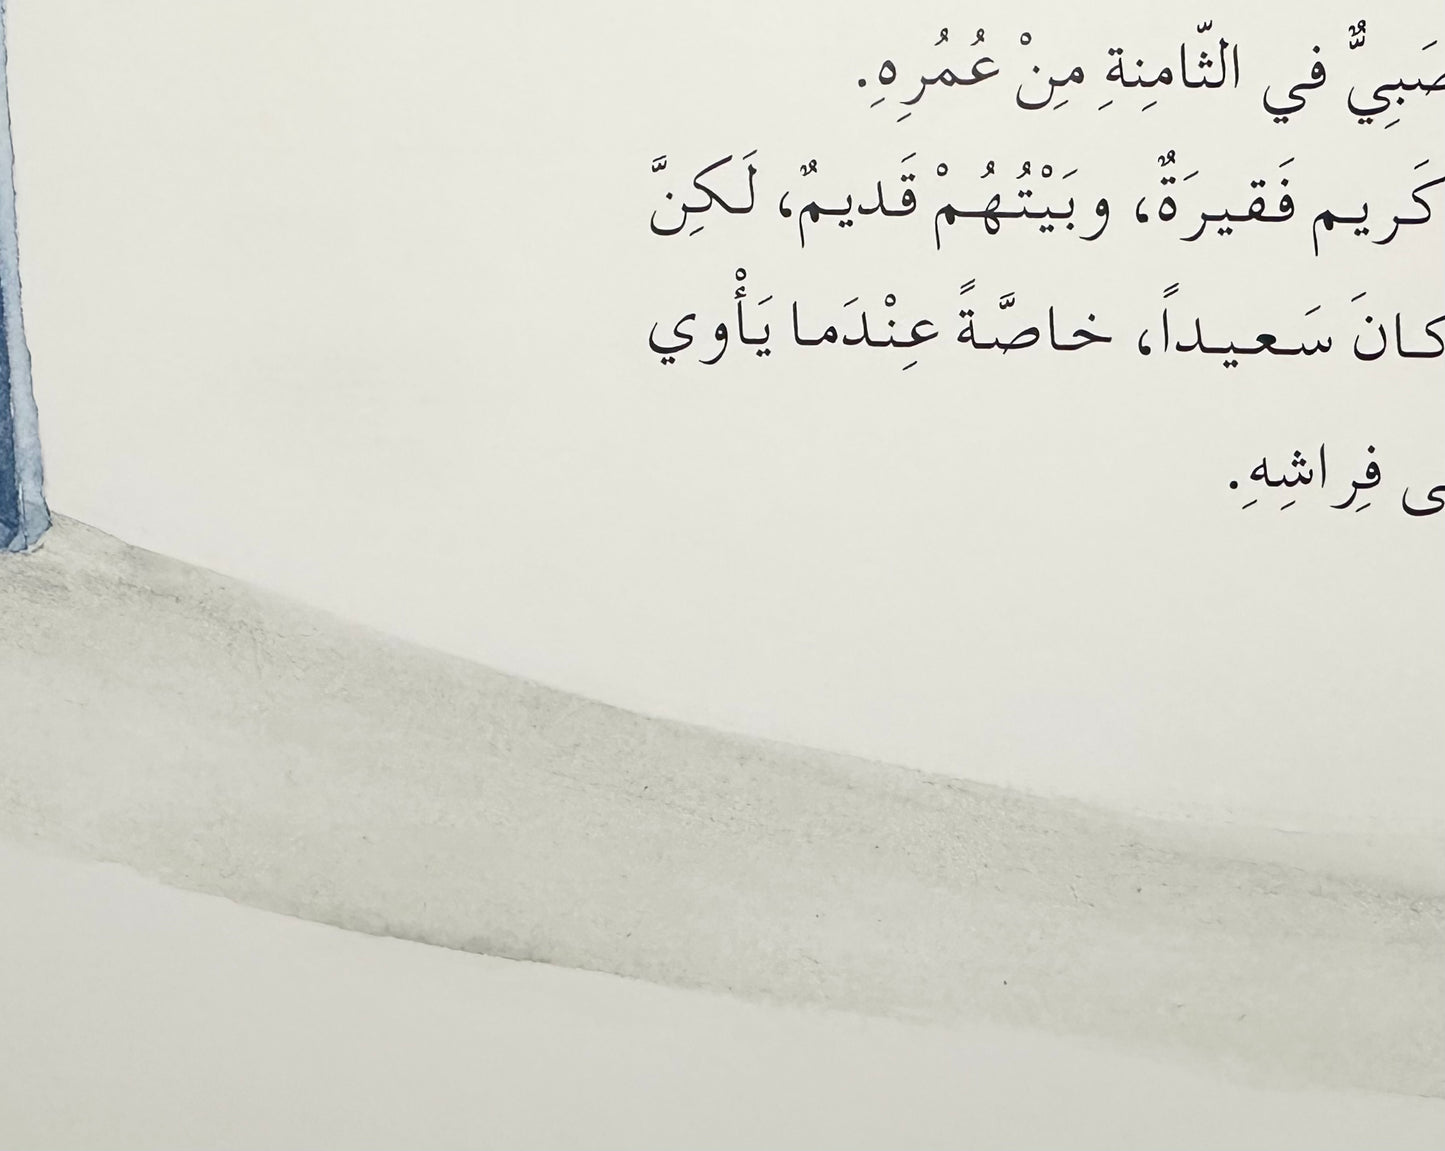 صَبِيٌّ في الثّامِنةِ مِنْ عُمُرِهِ.
كَريم فَقيرَةٌ، وبَيْتُهُمْ قَديمٌ، لَكِنَّ
كانَ سَعيداً، خاصَّةً عِنْدَما يَأْوي
فِراشِهِ.